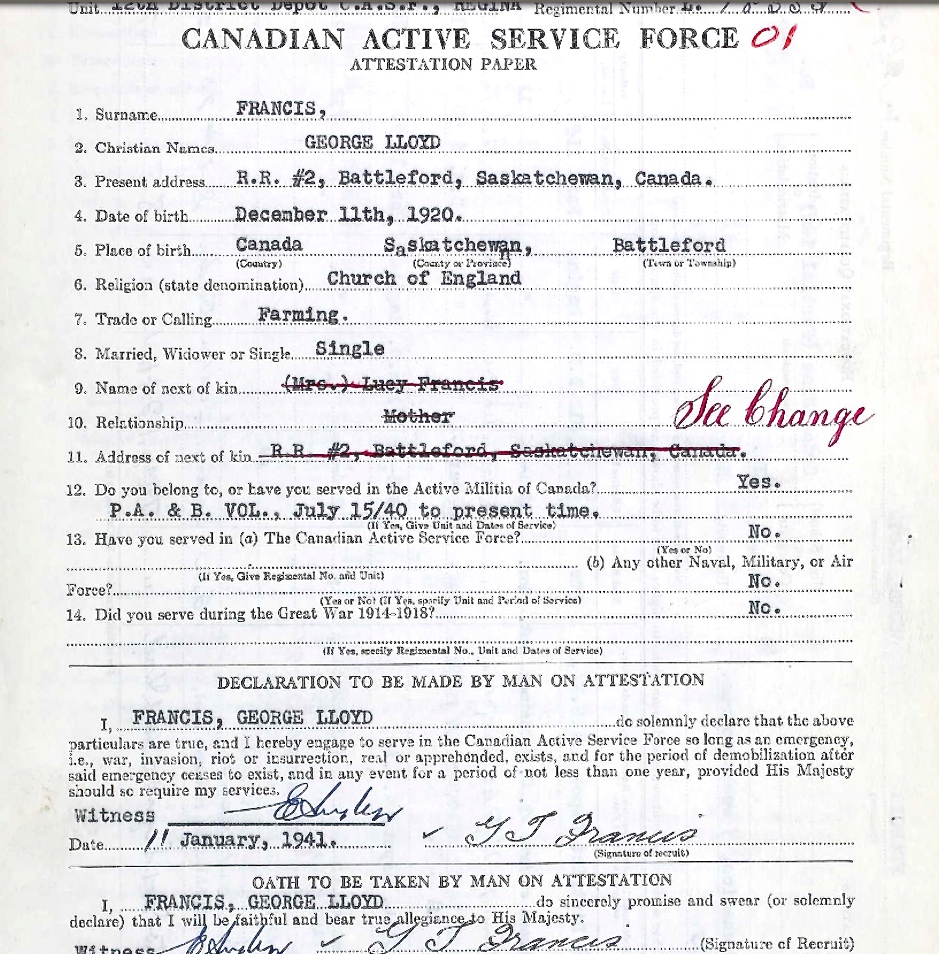 Unit 12th District Depot C.A.S.F., REGINA Regimental Number L.
CANADIAN ACTIVE SERVICE FORCE 01
ATTESTATION PAPER
1. Surname FRANCIS,
2. Christian Names GEORGE LLOYD
3. Present address R.R. #2, Battleford, Saskatchewan, Canada.
4. Date of birth December 11th, 1920.
5. Place of birth Canada Saskatchewan, Battleford
(Country) (County or Province) (Town or Township)
6. Religion (state denomination) Church of England
7. Trade or Calling Farming.
8. Married, Widower or Single Single
9. Name of next of kin (Mrs.) Lucy Francis
10. Relationship Mother See Change
11. Address of next of kin R.R. #2, Battleford, Saskatchewan, Canada.
12. Do you belong to, or have you served in the Active Militia of Canada? Yes.
P.A. & B. VOL., July 15/40 to present time.
(If Yes, Give Unit and Dates of Service)
13. Have you served in (a) The Canadian Active Service Force? No.
(Yes or No)
(b) Any other Naval, Military, or Air
(If Yes, Give Regimental No. and Unit)
Force? No.
(Yes or No) (If Yes, specify Unit and Period of Service)
14. Did you serve during the Great War 1914-1918? No.
(If Yes, specify Regimental No., Unit and Dates of Service)
DECLARATION TO BE MADE BY MAN ON ATTESTATION
I, FRANCIS, GEORGE LLOYD do solemnly declare that the above
particulars are true, and I hereby engage to serve in the Canadian Active Service Force so long as an emergency,
i.e., war, invasion, riot or insurrection, real or apprehended, exists, and for the period of demobilization after
said emergency ceases to exist, and in any event for a period of not less than one year, provided His Majesty
should so require my services.
Witness
Date 11 January, 1941. G Francis
(Signature of recruit)
OATH TO BE TAKEN BY MAN ON ATTESTATION
I, FRANCIS, GEORGE LLOYD do sincerely promise and swear (or solemnly
declare) that I will be faithful and bear true allegiance to His Majesty.
Witness G Francis (Signature of Recruit)